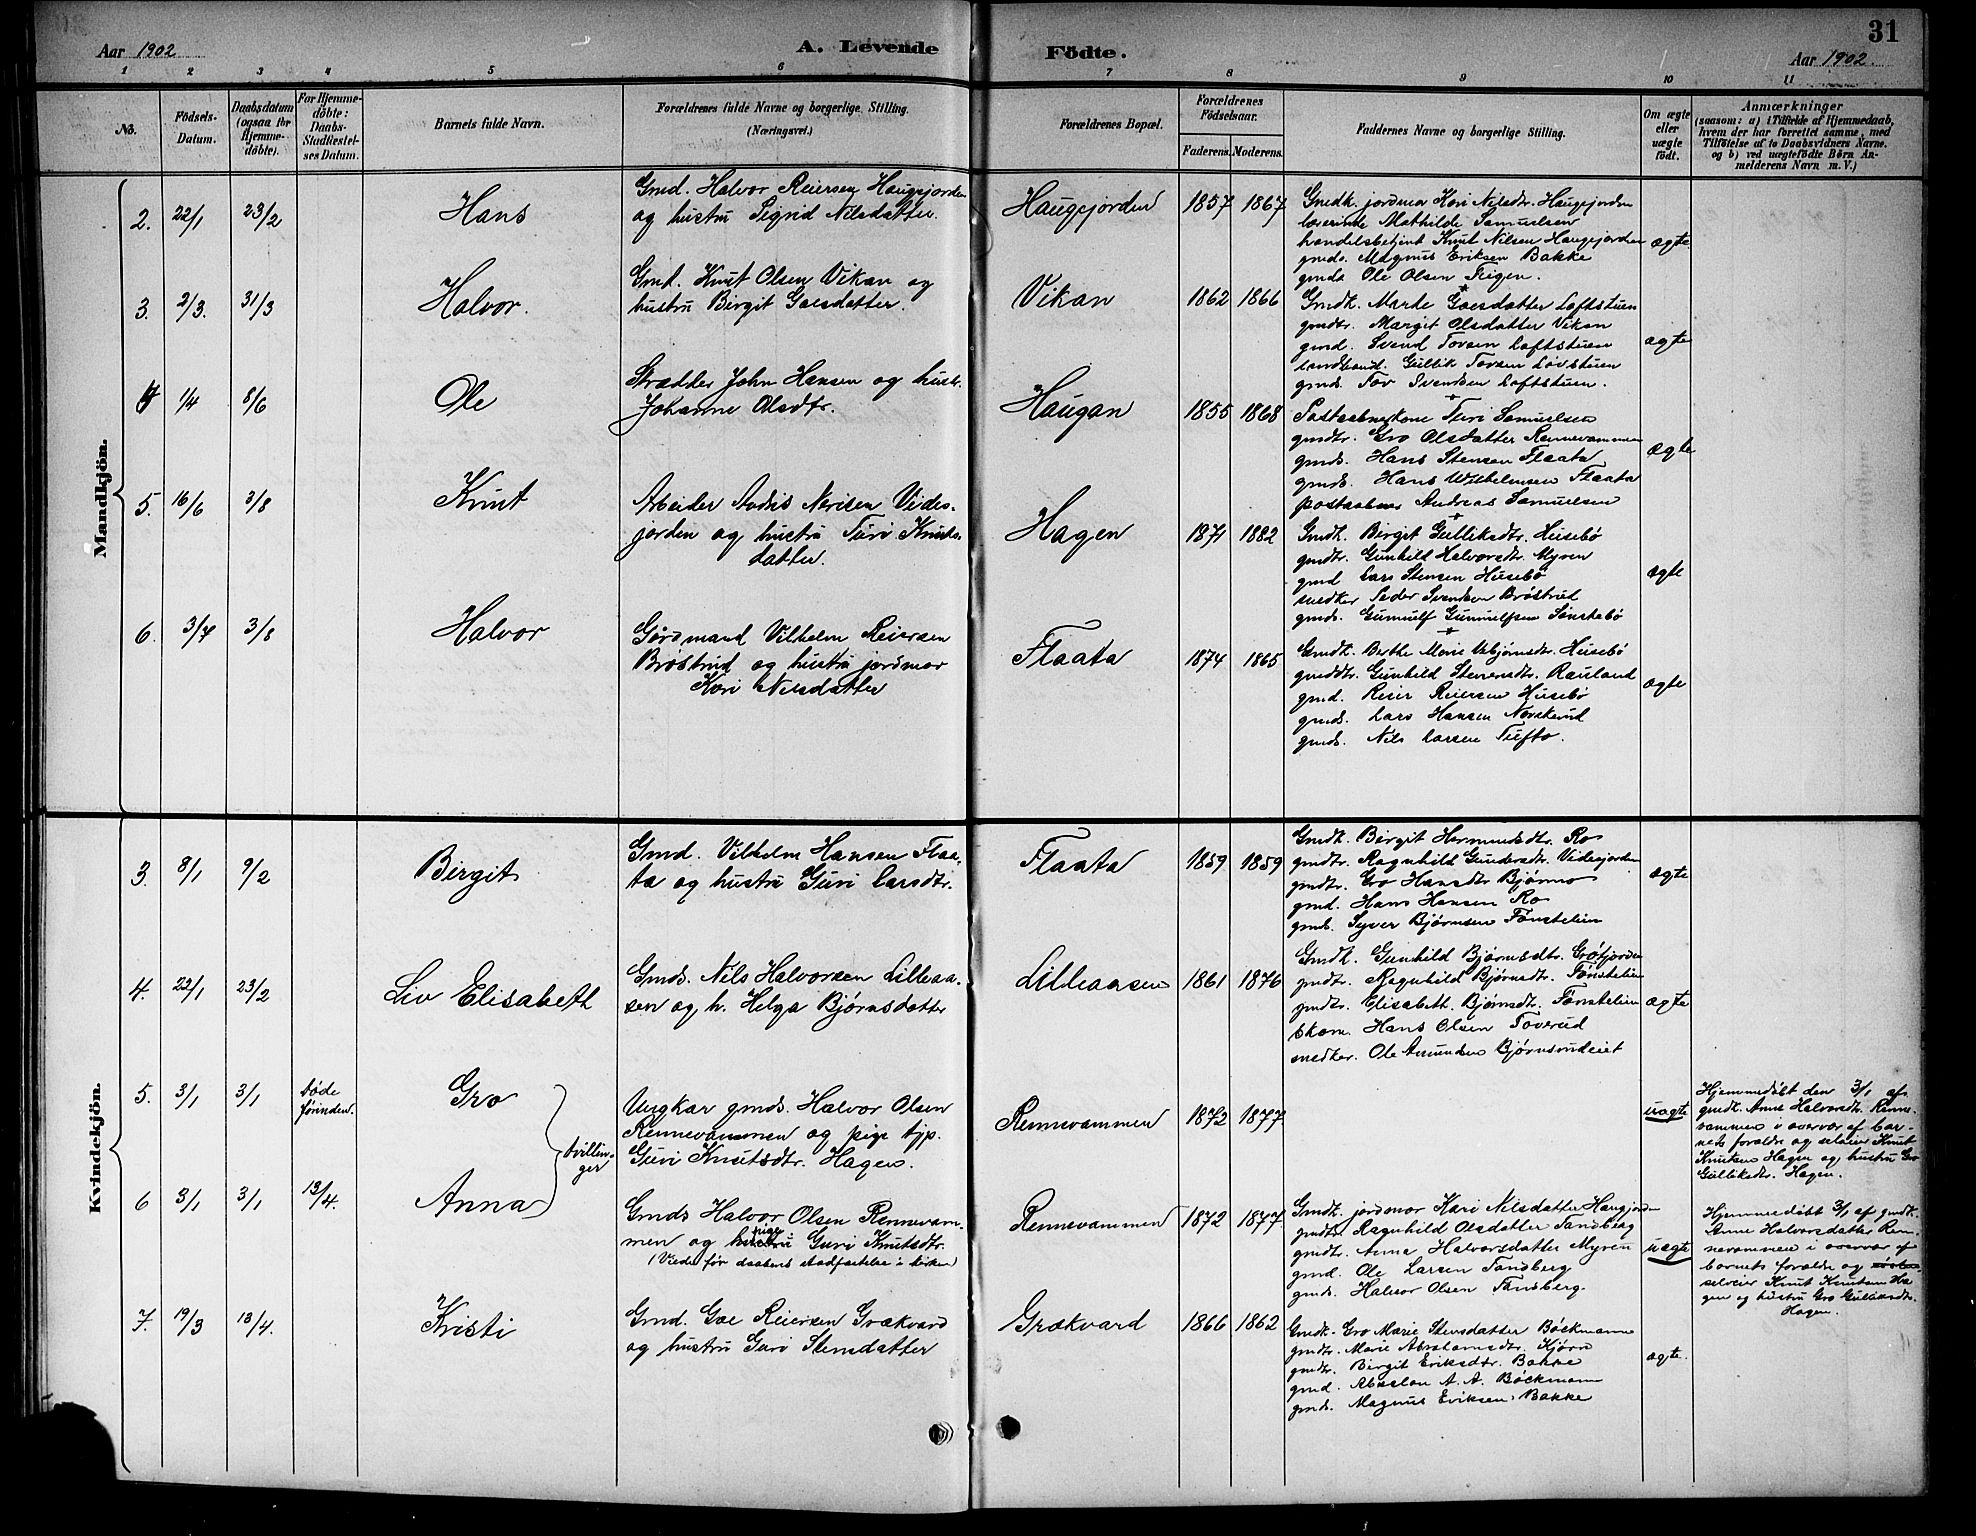 31
Aar 1902
A. Levende
Födte.
Aar 1902.
1 2 3 4 5 6 7 8 9 10 11
No.
Födsels-
Datum.
Daabsdatum
(ogsaa for
Hjemme-
döbte).
For Hjemme-
döbte:
Daabs-
Stadfæstel-
ses Datum.
Barnets fulde Navn.
Forældrenes fulde Navne og borgerlige Stilling.
(Næringsvei.)
Forældrenes Bopæl.
Forældrenes
Födselsaar.
Faderens.
Moderens.
Faddernes Navne og borgerlige Stilling.
Om ægte
eller
uægte
födt.
Anmærkninger
(saasom: a) i Tilfælde af Hjemmedaab,
hvem der har forrettet samme, med
Tilföielse af to Daabsvidners Navne.
og b) ved uægtefödte Börn An-
melderens Navn m. V.)
Mandkjön.
2. 22/1 23/2
Hans
Gmd. Halvor Reiersen Haugejorden
og hustru Sigrid Nilsdatter.
Haugejorden 1857 1867
Gmdk. jordmor Kari Nilsdtr. Haugejorden
lærerinde Mathilde Samuelsen
handelsbetjent Knut Nilsen Haugejorden
gmds. Magnus Eriksen Bakke
gmds Ole Olsen Teigen.
ægte
3. 2/3. 31/3
Halvor.
Gmd. Knut Olsen Vikan og
hustru Birgit Goesdatter.
Vikan 1862 1866
Gmdk. Marte Goesdatter Loftstuen
gmdtr. Margit Olsdatter Vikan
gmd. Svend Tovsen Loftstuen
landhand. Gullik Tovsen Lovstuen
gmds. Tov Svendsen Loftstuen.
ægte
4 1/4 8/6
Ole
Skrædder John Hansen og hust.
Johanne Olsdtr.
Haugan 1855 1868
Postaabnerkone Turi Samuelsen
gmdtr. Gro Olsdatter Rennevammen
gmds. Hans Stensen Flaata
gmds. Hans Wilhelmsen Flaata
postaabner Andreas Samuelsen
ægte
5. 16/6 3/8
Knut
Arbeider Andris Nerisen Vides-
jorden og hustru Turi Knuts-
datter.
Hagen 1871 1882
Gmdk. Birgit Gulliksdtr. Husebö
gmdtr. Gunhild Halvorsdtr. Myren
gmd Lars Stensen Husebö
snedker Peder Svendsen Bröstrud
gmds. Gunnulf Gunnulfsen Sönstebö
ægte
6. 3/7 3/8
Halvor
Gårdmand Vilhelm Reiersen
Bröstrud og hustru jordmor
Kari Nilsdatter
Flaata 1874 1865
Gmdk. Berthe Marie Asbjørnsdtr. Husebö
gmdtr. Gunhild Stenersdtr. Rauland
gmd. Reier Reiersen Husebö
gmds. Lars Hansen Nørsterud
gmds. Nils Larsen Tufto.
ægte
Kvindekjön.
3. 8/1 9/2
Birgit
Gmd. Vilhelm Hansen Flaa-
ta og hustru Guri Larsdtr.
Flaata 1859 1859
Gmdk. Birgit Hermundsdtr. Ro
gmdtr. Ragnhild Gundersdtr. Videsjorden
gmdtr. Gro Hansdtr Bjørmo
gmd. Hans Hansen Ro
gmds. Syver Bjørnsen Fønstelien
ægte
4. 22/1 23/2
Liv Elisabeth
Gmds. Nils Halvorsen Lilleaa-
sen og h. Helga Bjørnsdatter
Lilleaasen 1861 1876
Gmdk. Gunhild Bjørnsdtr. Gröfjorden
gmdtr. Ragnhild Bjørnsdtr. Fønstelien
gmdtr. Elisabeth Bjørnsdtr. Fønstelien
skom. Hans Olsen Toverud
snedker. Ole Amundsen Bjørnsrudeiet
ægte
5. 3/1 3/1
døde
førinden.
Gro
tvillin-
ger
Ungkar gmds. Halvor Olsen
Rennevammen og pige tjp.
Guri Knutsdtr. Hagen.
Rennevammen 1872 1877
uægte
Hjemmedøbt den 3/1 af
gmdk. Anne Halvorsdtr. Renne-
vammen i overvær af bar-
nets forældre og selveier Knut
Knutsen Hagen og hustru Gro
Gulliksdtr. Hagen.
6 3/1 3/1 13/4.
Anna
Gmds Halvor Olsen Rennevam-
men og hustru pige Guri Knutsdtr.
(Viede før daabens stadfæstelse i kirken)
Rennevammen 1872 1877
Gmdk. jordmor Kari Nilsdatter Haugejorden
gmdtr. Ragnhild Olsdatter Sandberg
gmdtr. Anna Halvorsdatter Myren
gmd. Ole Larsen Sandberg
gmds. Halvor Olsen Sandberg.
uægte
Hjemmedøbt 3/1 af gmdk.
Anne Halvorsdatter Ren-
nevammen i overvær af
barnets forældre og
selveier Knut Knutsen Ha-
gen og hustru Gro Gulliksdtr.
Hagen.
7. 19/3 13/4.
Kristi
Gmd. Goe Reiersen Grækvard
og hustru Guri Stensdatter
Grækvard 1866 1862
Gmdk. Gro Marie Stensdatter Böckmann
gmdtr. Marie Abrahamsdtr. Kjörn
gmdtr. Birgit Eriksdtr. Bakke
gmd. Absalon A. A. Böckmann
gmds. Magnus Eriksen Bakke
ægte.